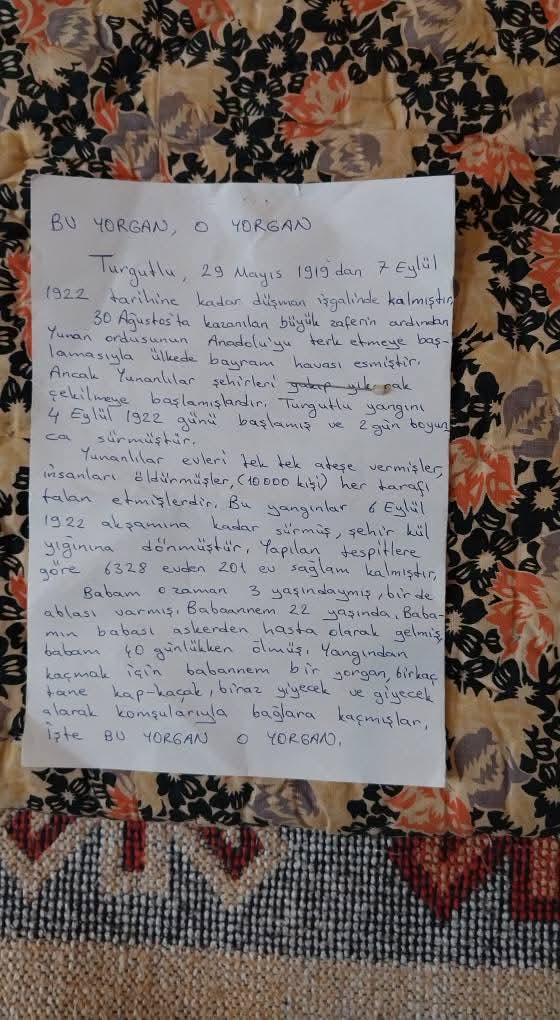 BU YORGAN, O YORGAN
Turgutlu, 29 Mayıs 1919'dan 7 Eylül
1922 tarihine kadar düşman işgalinde kalmıştır.
30 Ağustos'ta kazanılan büyük zaferin ardından
Yunan ordusunun Anadolu'yu terk etmeye baş-
lamasıyla ülkede bayram havası esmiştir.
Ancak Yunanlılar şehirleri yakıp yık rak
çekilmeye başlamışlardır. Turgutlu yangını
4 Eylül 1922 günü başlamış ve 2 gün boyun
ca sürmüştür.
Yunanlılar evleri tek tek ateşe vermişler,
insanları öldürmüşler, (10000 kişi) her tarafı
talan etmişlerdir. Bu yangınlar 6 Eylül
1922 akşamına kadar sürmüş, şehir kül
yığınına dönmüştür. Yapılan tespitlere
göre 6328 evden 201 ev sağlam kalmıştır.
Babam o zaman 3 yaşındaymış, bir de
ablası varmış. Babaannem 22 yaşında. Baba-
mın babası askerden hasta olarak gelmiş,
babam 40 günlükken ölmüş. Yangından
kaçmak için babannem bir yorgan, birkaç
tane kap-kaçak, biraz yiyecek ve giyecek
alarak komşularıyla bağlara kaçmışlar.
İşte BU YORGAN O YORGAN.